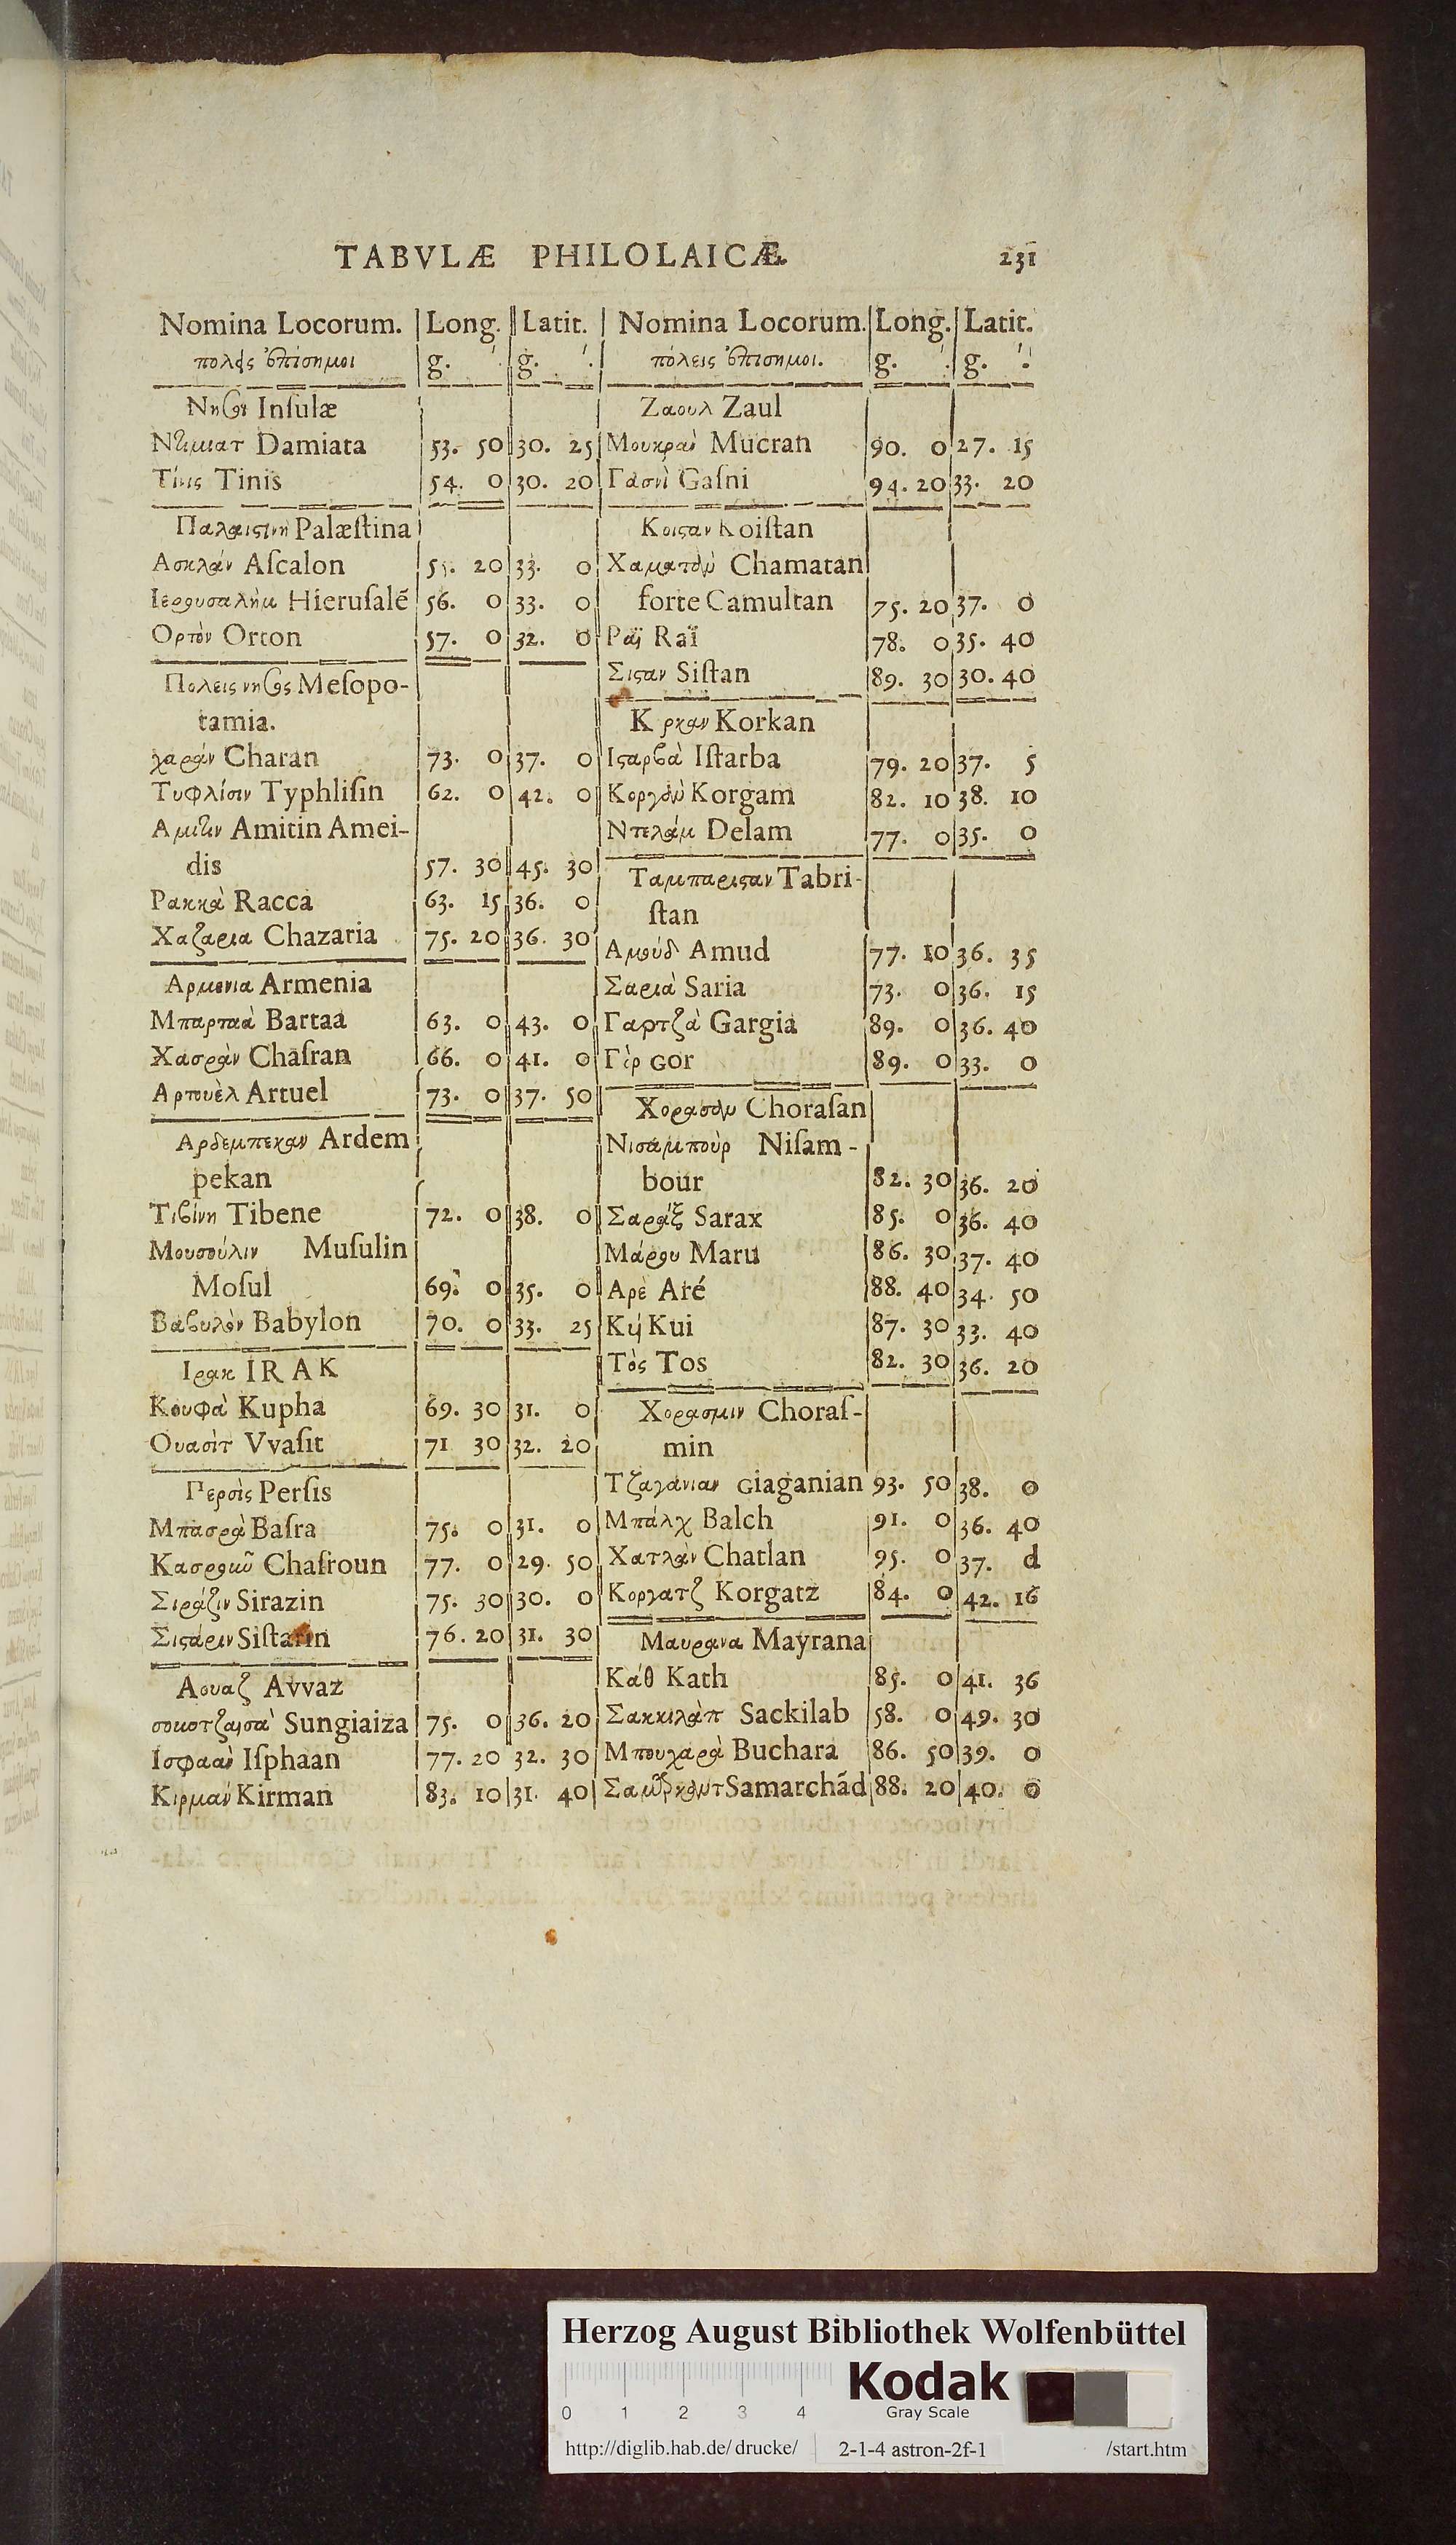 TABVLÆ PHILOLAICÆ 231
Nomina Locorum. Long. Latit.
πολεις ἐπίσημοι g. ' g. '
Νησοι Inſulæ
Damiata 53. 50 30. 25
Τίνις Tinis 54. 0 30. 20
Παλαιςινη Palæſtina
Ασκλάν Aſcalon 55. 20 33. 0
Ιερουσαλὴμ Hieruſalē 56. 0 33. 0
Ορτὸν Orton 57. 0 32. 0
Πολεις νησος Meſopo-
tamia.
χαράν Charan 73. 0 37. 0
Τυφλίσιν Typhliſin 62. 0 42. 0
Αμιτιν Amitin Amei-
dis 57. 30 45. 30
Ρακκὰ Racca 63. 15 36. 0
Χαζαρια Chazaria 75. 20 36. 30
Αρμενια Armenia
Μπαρταὰ Bartaa 63. 0 43. 0
Χασρὰν Chaſran 66. 0 41. 0
Αρτουὲλ Artuel 73. 0 37. 50
Αρδεμπεκαν Ardem
pekan
Τιβίνη Tibene 72. 0 38. 0
Μουσούλιν Muſulin
Moſul 69. 0 35. 0
Βαβυλὸν Babylon 70. 0 33. 25
Ιρακ IRAK
Κουφὰ Kupha 69. 30 31. 0
Ουασὶτ Vvaſit 71 30 32. 20
Περσὶς Perſis
Μπασρὰ Baſra 75. 0 31. 0
Κασροῦν Chaſroun 77. 0 29. 50
Σιράζιν Sirazin 75. 30 30. 0
Σιςάριν Siſtarin 76. 20 31. 30
Αουαζ Avvaz
Sungiaiza 75. 0 36. 20
Ισφαὰν Iſphaan 77. 20 32. 30
Κιρμαν Kirman 83. 10 31. 40
Nomina Locorum. Long. Latit.
πόλεις ἐπίσημοι. g. ' g. '
Ζαουλ Zaul
Μουκραὶν Mucran 90. 0 27. 15
Γασνὶ Gaſni 94. 20 33. 20
Κοιςαν Koiſtan
Χαματὰν Chamatan
forte Camultan 75. 20 37. 0
Ραϊ Raï 78. 0 35. 40
Σιςαν Siſtan 89. 30 30. 40
Κ ρκαν Korkan
Ιςαρβὰ Iſtarba 79. 20 37. 5
Κοργὰν Korgam 82. 10 38. 10
Ντελάμ Delam 77. 0 35. 0
Ταμπαριςαν Tabri-
ſtan
Αμούδ Amud 77. 10 36. 35
Σαριὰ Saria 73. 0 36. 15
Γαρτζὰ Gargia 89. 0 36. 40
Γὸρ Gor 89. 0 33. 0
Χορασὰν Choraſan
Νισαμποὺρ Niſam-
bour 82. 30 36. 20
Σαράξ Sarax 85. 0 36. 40
Μάρου Maru 86. 30 37. 40
Αρὲ Aré 88. 40 34. 50
Κύϊ Kui 87. 30 33. 40
Τὸς Tos 82. 30 36. 20
Χορασμιν Choraſ-
min
Τζαγάνιαν Giaganian 93. 50 38. 0
Μπάλχ Balch 91. 0 36. 40
Χατλὰν Chatlan 95. 0 37. d
Κοργατζ Korgatz 84. 0 42. 16
Μαυρανα Mayrana
Κάθ Kath 85. 0 41. 36
Σακκιλὰπ Sackilab 58. 0 49. 30
Μπουχαρὰ Buchara 86. 50 39. 0
Samarchãd 88. 20 40. 0
Herzog August Bibliothek Wolfenbüttel
Kodak
Gray Scale
0 1 2 3 4
http://diglib.hab.de/drucke/ 2-1-4 astron-2f-1 /start.htm